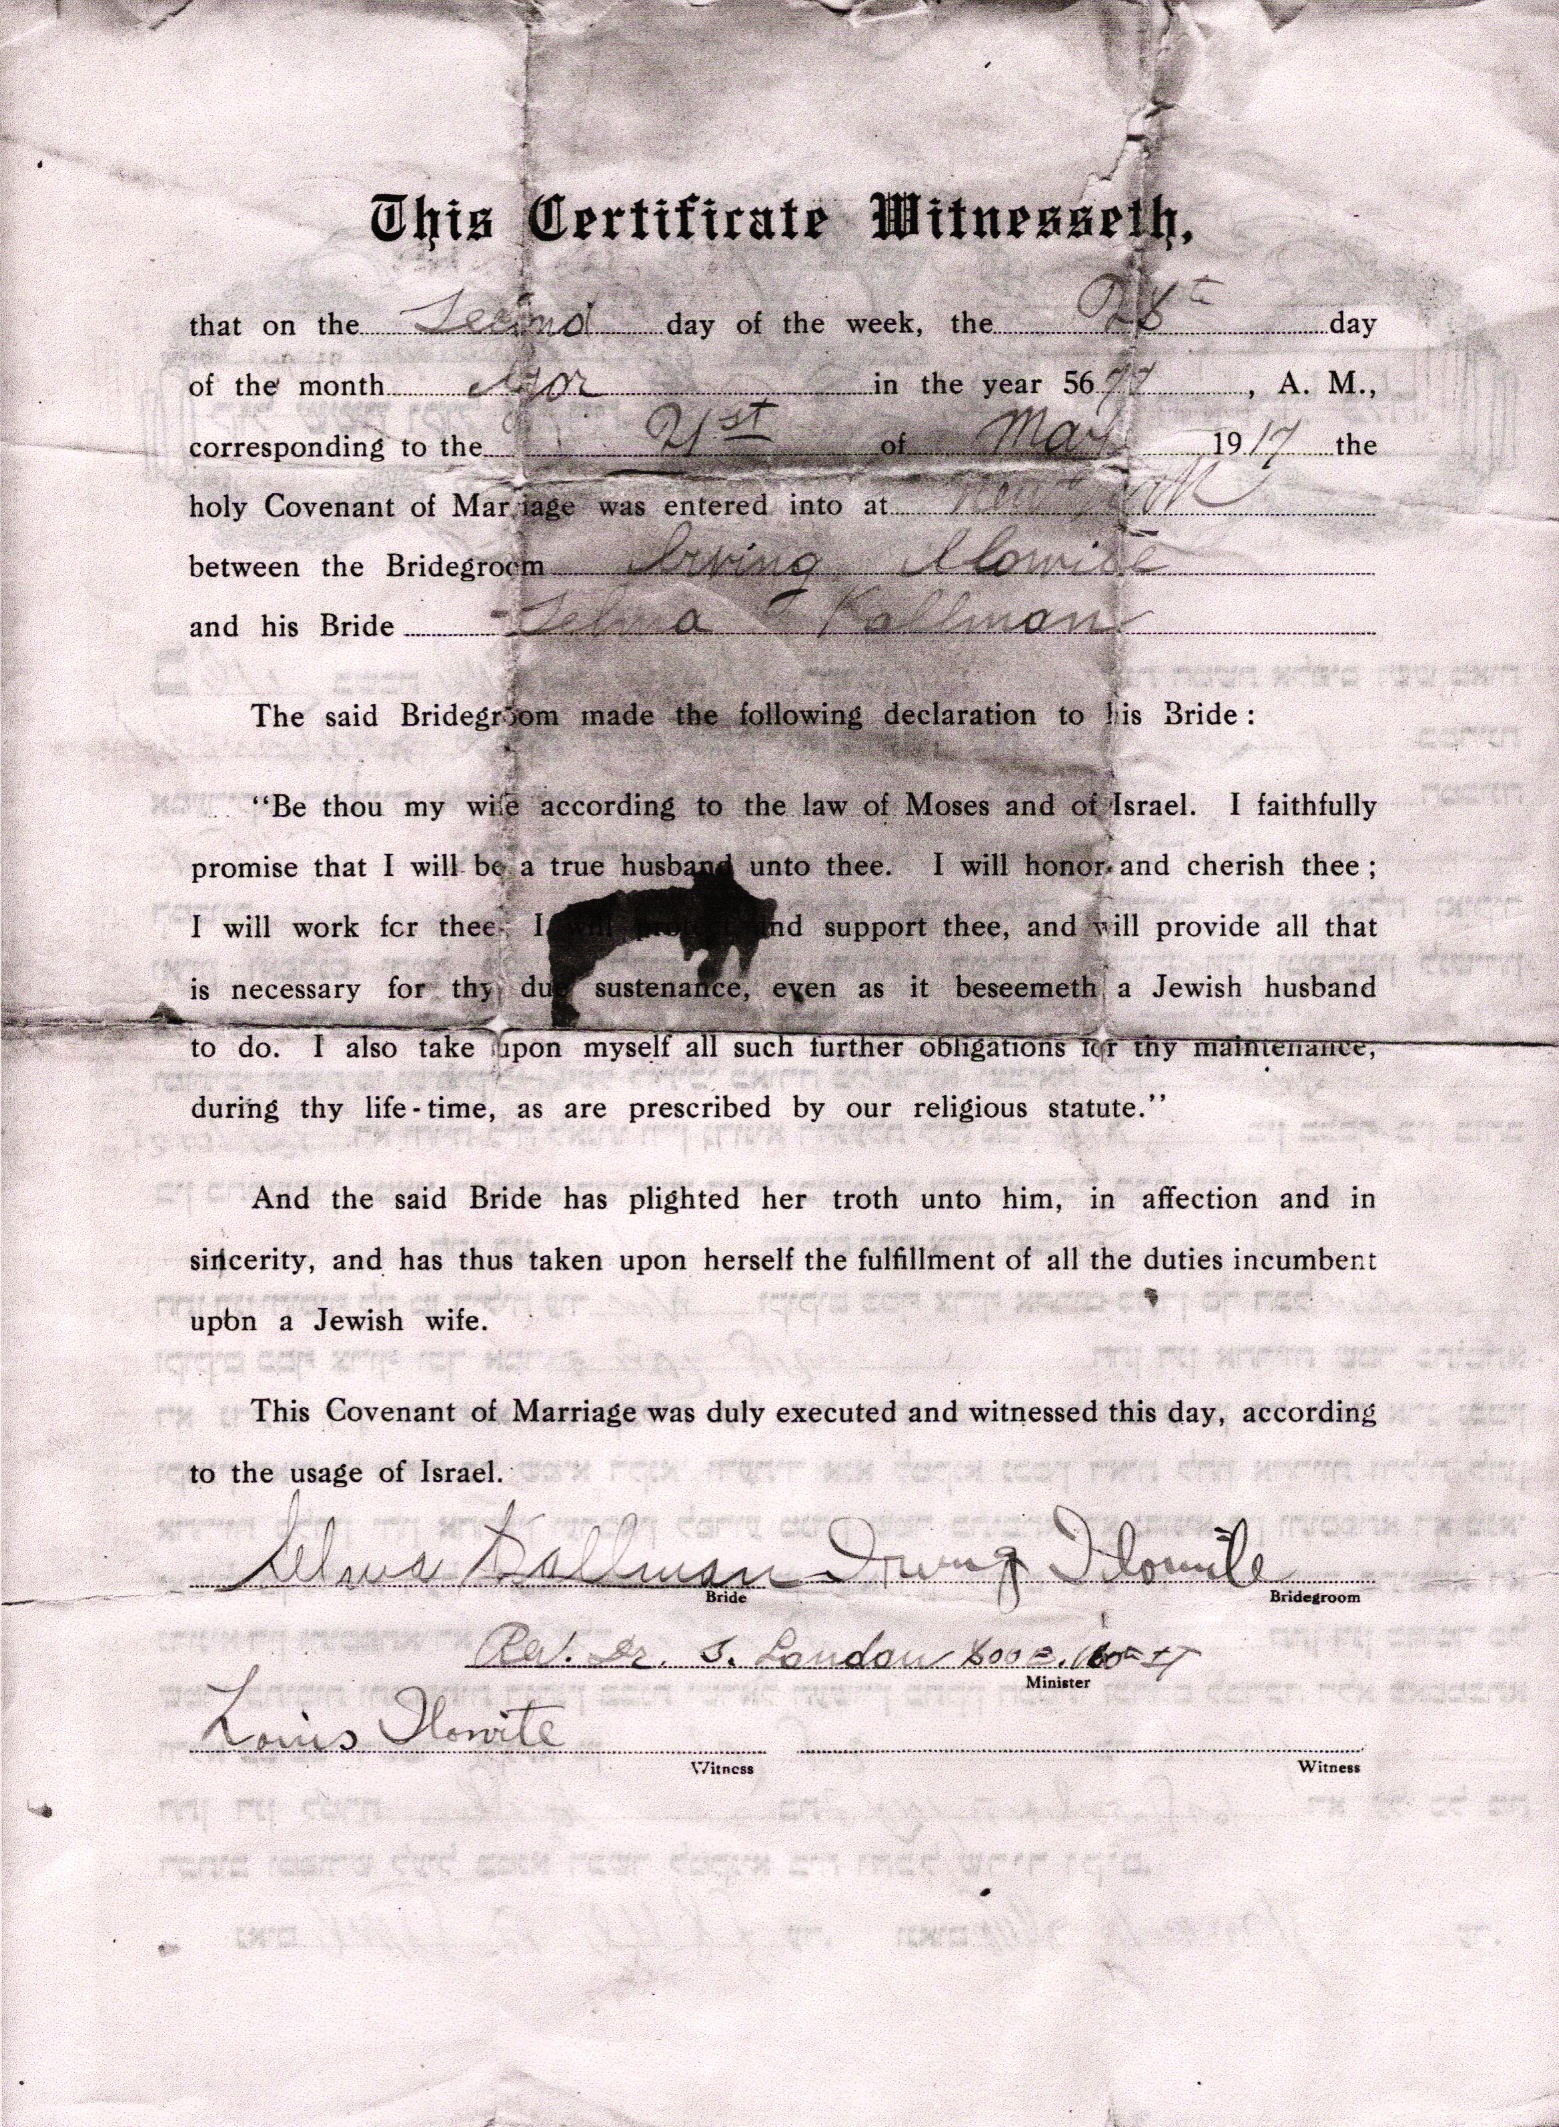 This Certificate Witnesseth,
that on the Second day of the week, the 28th day
of the month Iyor in the year 5677, A. M.,
corresponding to the 21st of May 1917 the
holy Covenant of Marriage was entered into at New York
between the Bridegroom Irving Ilowite
and his Bride Selma Kallman
The said Bridegroom made the following declaration to his Bride:
“Be thou my wife according to the law of Moses and of Israel. I faithfully
promise that I will be a true husband unto thee. I will honor and cherish thee;
I will work for thee; I will protect and support thee, and will provide all that
is necessary for thy due sustenance, even as it beseemeth a Jewish husband
to do. I also take upon myself all such further obligations for thy maintenance,
during thy life-time, as are prescribed by our religious statute.”
And the said Bride has plighted her troth unto him, in affection and in
sincerity, and has thus taken upon herself the fulfillment of all the duties incumbent
upon a Jewish wife.
This Covenant of Marriage was duly executed and witnessed this day, according
to the usage of Israel.
Selma Kallman Irving Ilowite
Bride Bridegroom
Rev. Dr. S. Landau 800 E. 160th St
Minister
Louis Ilowite
Witness Witness